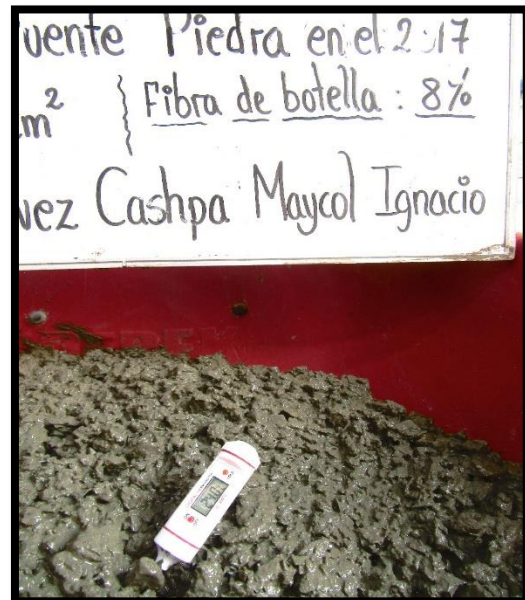 uente Piedra en el 2017
m² } Fibra de botella : 8%
vez Cashpa Maycol Ignacio